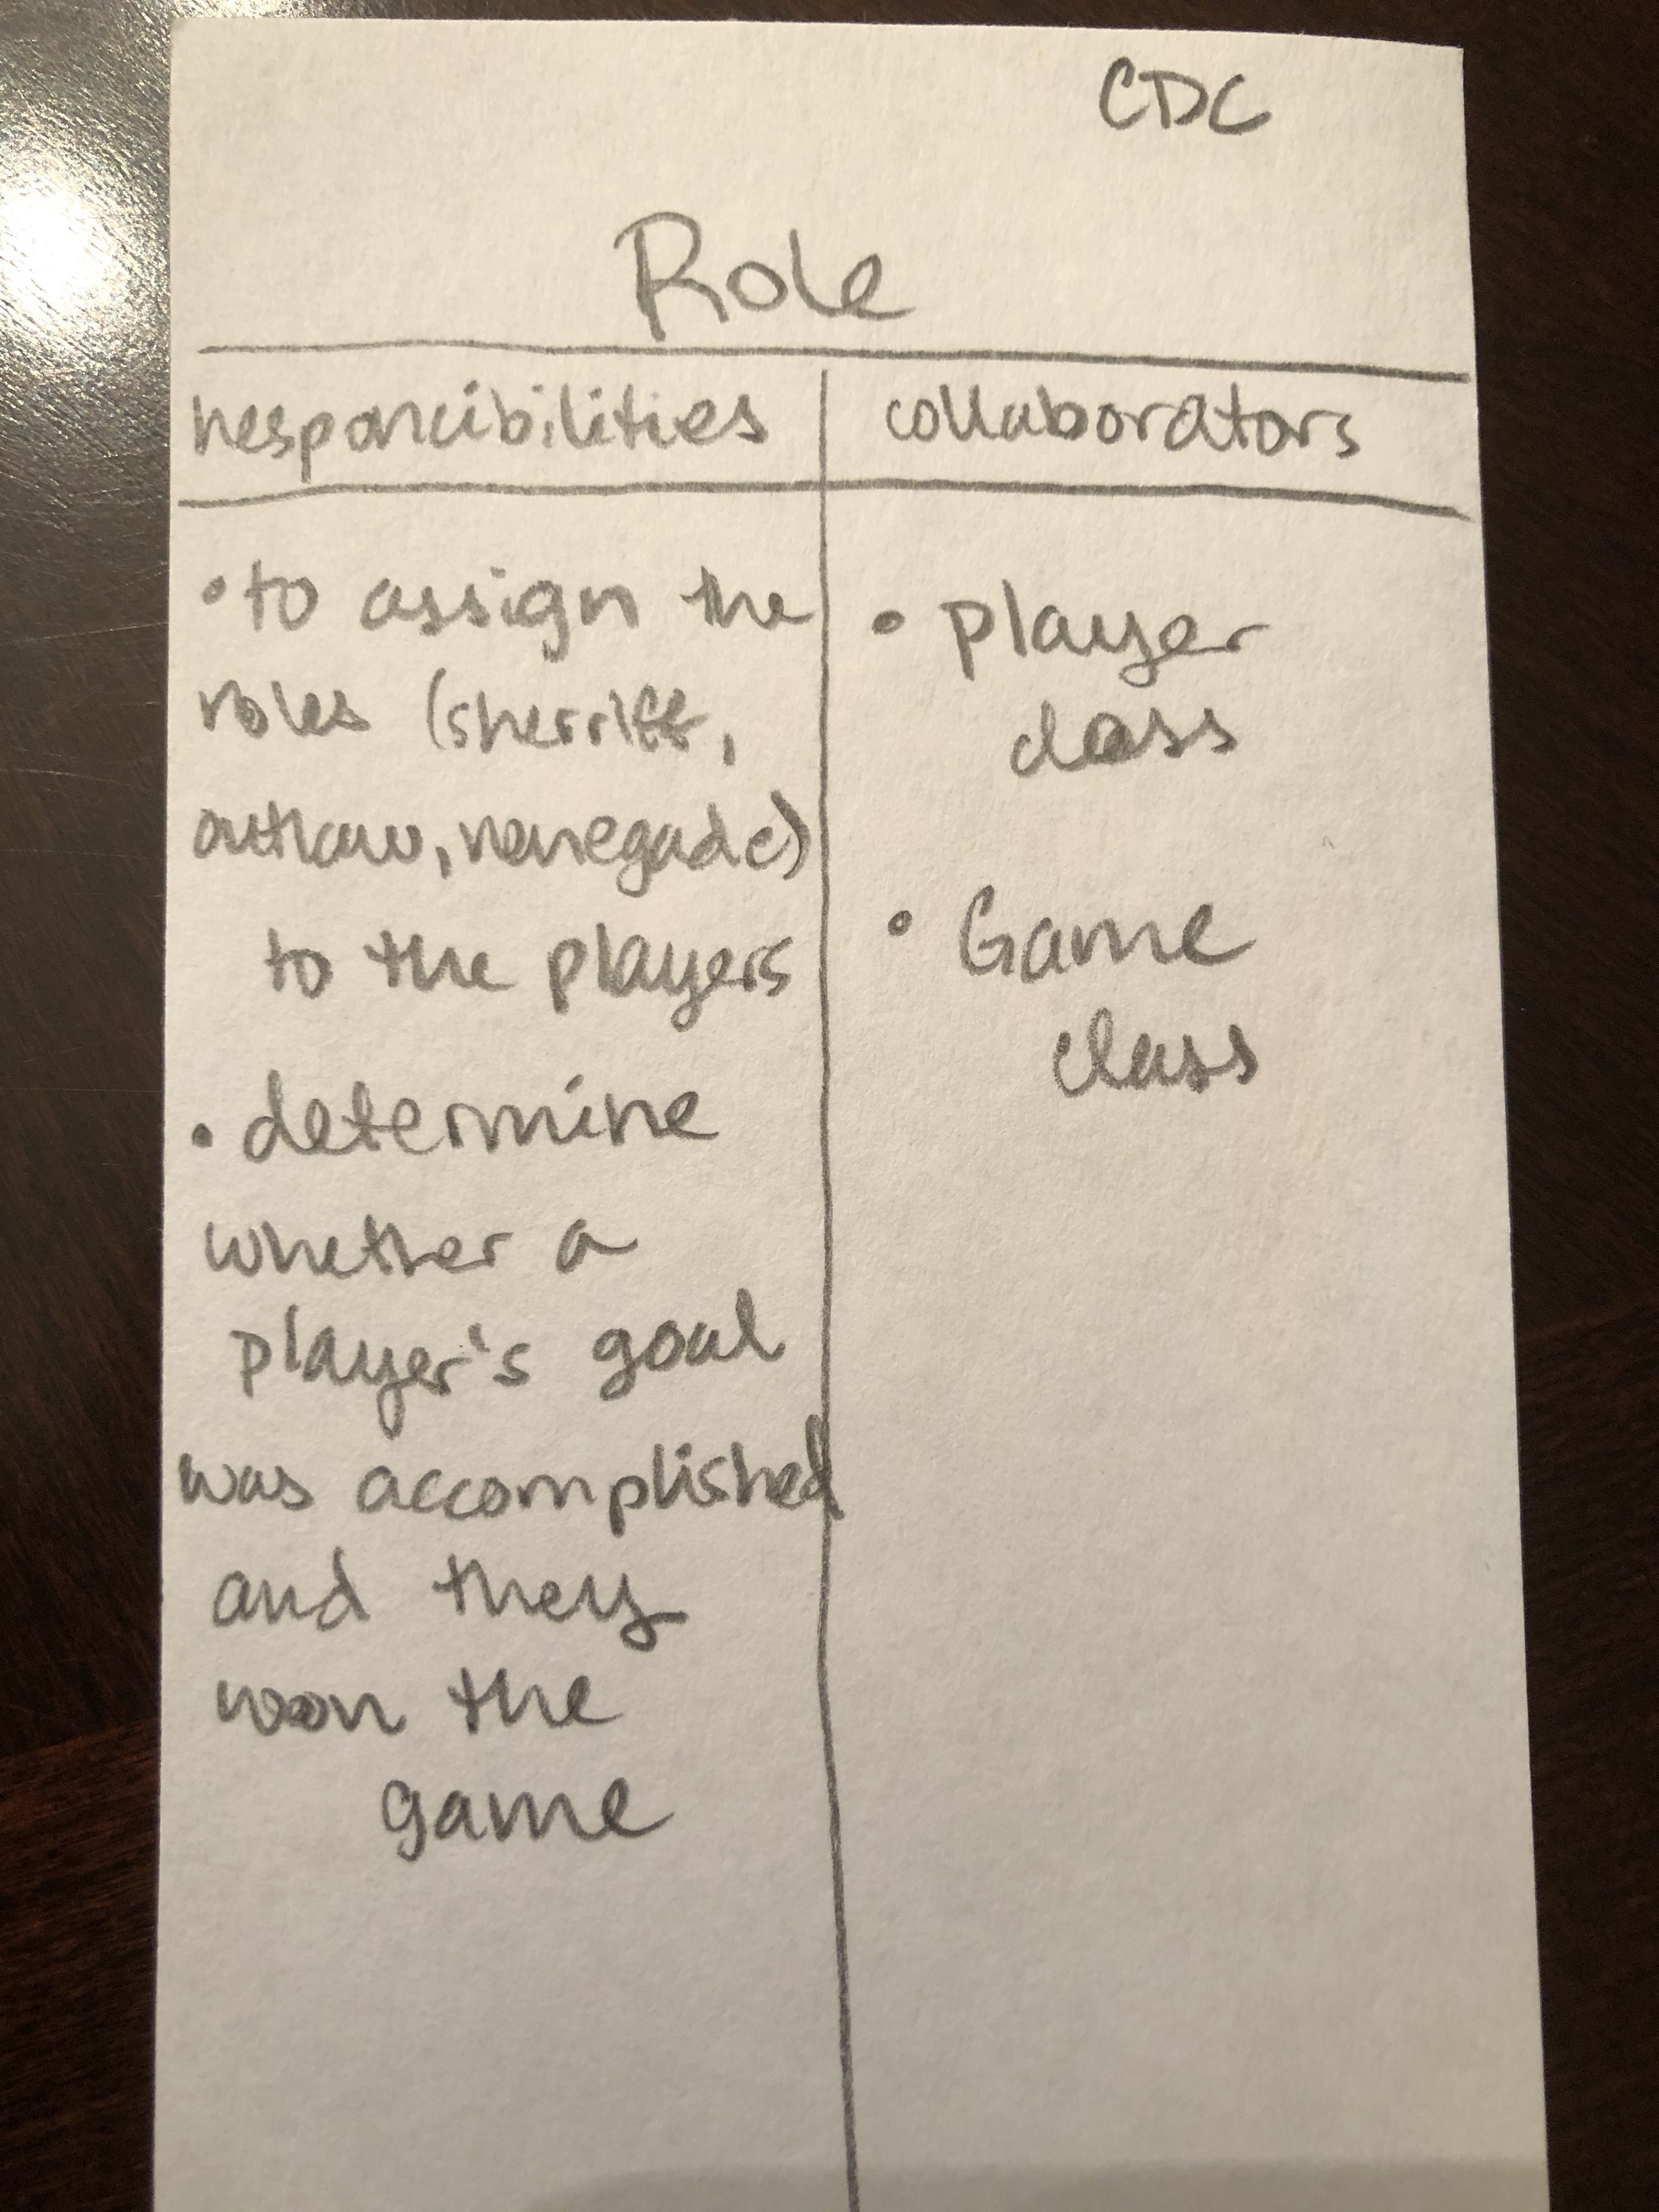 CDC
Role
responcibilities
collaborators
• to assign the
roles (sherriff,
outlaw, renegade)
to the players
• determine
whether a
player's goal
was accomplished
and they
won the
game
• Player
class
• Game
class